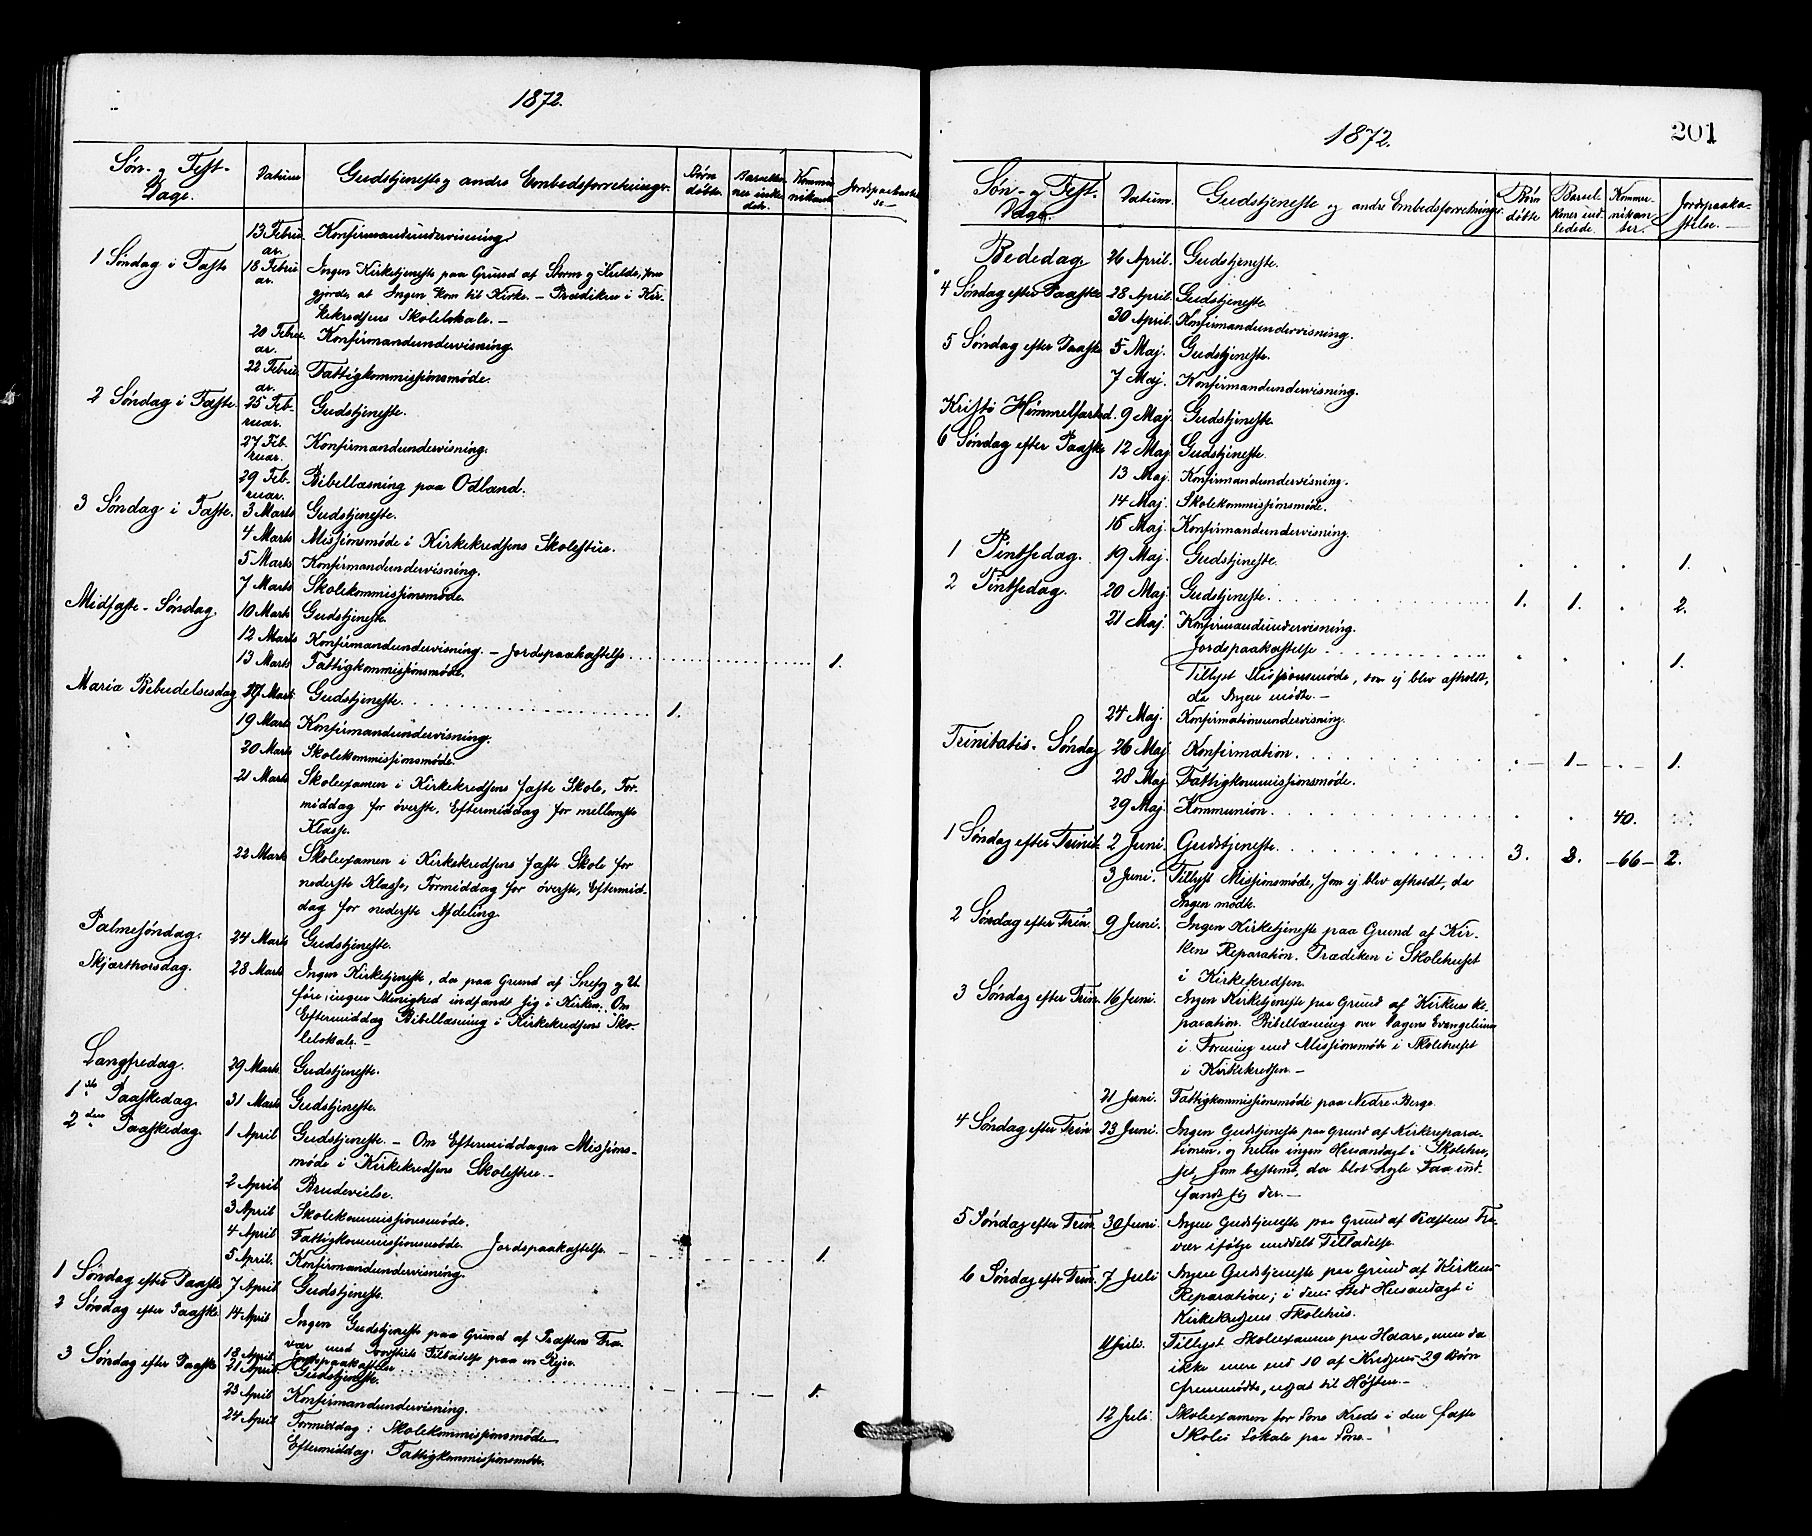 1872.
Søn- og Fest-
Dage.
Datum
Gudstjeneste og andre Embedsforretninger.
Børn
døbte.
Barselko-
ner indle-
dede.
Kommu-
nikanter
Jordpaakastel-
se
13 Febru-
ar.
Konfirmandundervisning
1 Søndag i Faste
18 Febru-
ar.
Ingen Kirketjeneste paa Grund af Storm og Kulde, som
gjorde, at Ingen kom til Kirke. – Prædiken i Kir-
kekredsens Skolelokale. –
20 Febru-
ar.
Konfirmandundervisning.
22 Febru-
ar.
Fattigkommissionsmøde.
2 Søndag i Faste.
25 Feb-
ruar.
Gudstjeneste.
27 Feb-
ruar.
Konfirmandundervisning.
29 Feb-
ruar.
Bibellæsning paa Odland.
3 Søndag i Faste.
3 Marts
Gudstjeneste.
4 Marts
Missionsmøde i Kirkekredsens Skolestue.
5 Marts
Konfirmandundervisning.
7 Marts
Skolekommissionsmøde.
Midfaste-Søndag.
10 Marts
Gudstjeneste.
12 Marts
Konfirmandundervisning. – Jordspaakastelse 1.
13 Marts
Fattigkommissionsmøde.
Maria Bebudelsesdag
17 Marts
Gudstjeneste. 1.
19 Marts
Konfirmandundervisning.
20 Marts
Skolekommissionsmøde.
21 Marts
Skoleexamen i Kirkekredsens faste Skole, For-
middag for øverste, Eftermiddag for mellemste
Klasse.
22 Marts
Skoleexamen i Kirkekredsens faste Skole for
nederste Klasse, Formiddag for øverste, Eftermid-
dag for nederste Afdeling.
Palmesøndag.
24 Marts
Gudstjeneste.
Skjærthorsdag.
28 Marts
Ingen Kirketjeneste, da paa Grund af Snefog og U-
føre, ingen Menighed indfandt sig i Kirken. Om
Eftermiddag Bibellæsning i Kirkekredsens Sko-
lelokale. –
Langfredag.
29 Marts
Gudstjeneste.
1ste Paaskedag.
31 Marts
Gudstjeneste.
2den Paaskedag.
1 April
Gudstjeneste. – Om Eftermiddagen Missions-
møde i Kirkekredsens Skolestue. –
2 April
Brudevielse.
3 April
Skolekommissionsmøde.
4 April
Fattigkommissionsmøde. Jordspaakastelse. – 1.
5 April.
Konfirmandundervisning.
1 Søndag efter Paaske
7 April
Gudstjeneste.
2 Søndag efter Paaske
14 April
Ingen Gudstjeneste paa Grund af Præstens Fra-
vær med Provstiets Tilladelse paa en Rejse.
18 April.
Jordspaakastelse
3 Søndag efter Paaske
21 April
Gudstjeneste. 1.
23 April
Konfirmandundervisning.
24 April
Formiddag: Skolekommissionsmøde
Eftermiddag: Fattigkommissionsmøde.
1872.
201
Søn- og Fest-
Dage.
Datum.
Gudstjeneste og andre Embedsforretninger.
Børn
døbte
Barsel-
koner ind-
ledede.
Kommu-
nikan-
ter.
Jordspaaka-
stelse. –
Bededag.
26 April.
Gudstjeneste.
4 Søndag efter Paaske
28 April.
Gudstjeneste.
30 April.
Konfirmandundervisning.
5 Søndag efter Paaske
5 Maj.
Gudstjeneste.
7 Maj.
Konfirmandundervisning.
Kristi Himmelfartsd.
9 Maj.
Gudstjeneste.
6 Søndag efter Paaske
12 Maj.
Gudstjeneste.
13 Maj.
Konfirmandundervisning.
14 Maj.
Skolekommissionsmøde.
16 Maj.
Konfirmandundervisning.
1 Pintsedag.
19 Maj.
Gudstjeneste. 1.
2 Pintsedag.
20 Maj.
Gudstjeneste. 1. 1. 2.
21 Maj.
Konfirmandundervisning.
Jordspaakastelse 1.
Tillyst Missionsmøde, som ej blev afholdt,
da Ingen mødte. –
24 Maj.
Konfirmationsundervisning.
Trinitatis-Søndag
26 Maj
Konfirmation. 1 1.
28 Maj
Fattigkommissionsmøde.
29 Maj.
Kommunion. 40.
1 Søndag efter Trinit.
2 Juni.
Gudstjeneste. 3. 3. –66– 2.
3 Juni.
Tillyst Missionsmøde, som ej blev afholdt, da
Ingen mødte.
2 Søndag efter Trin.
9 Juni.
Ingen Kirketjeneste paa Grund af Kir-
kens Reparation. Prædiken i Skolehuset
i Kirkekredsen.
3 Søndag efter Trin.
16 Juni.
Ingen Kirketjeneste paa Grund af Kirkens Re-
paration. Bibellæsning over Dagens Evangelium
i Forening med Missionsmøde i Skolehuset
i Kirkekredsen. –
21 Juni.
Fattigkommissionsmøde paa Nedre-Berge.
4 Søndag efter Trin
23 Juni.
Ingen Gudstjeneste paa Grund af Kirkrepara-
tionen, og heller ingen Husandagt i Skolehu-
set, som bestemt, da blot nogle Faa ind-
fandt sig der. –
5 Søndag efter Trin.
30 Juni.
Ingen Gudstjeneste paa Grund af Præstens Fra-
vær ifølge meddelt Tilladelse.
6 Søndag efter Trin.
7 Juli
Ingen Gudstjeneste paa Grund af Kirkens
Reparation; i dens Sted Husandagt i
Kirkekredsens Skolehus.
11 Juli.
Tillyst Skoleexamen paa Haare, men da
ikke mere end 10 af Kredsens 29 Børn
fremmødte, udsat til Høsten. –
12 Juli.
Skoleexamen for Kreds i den faste
Skoles Lokale paa